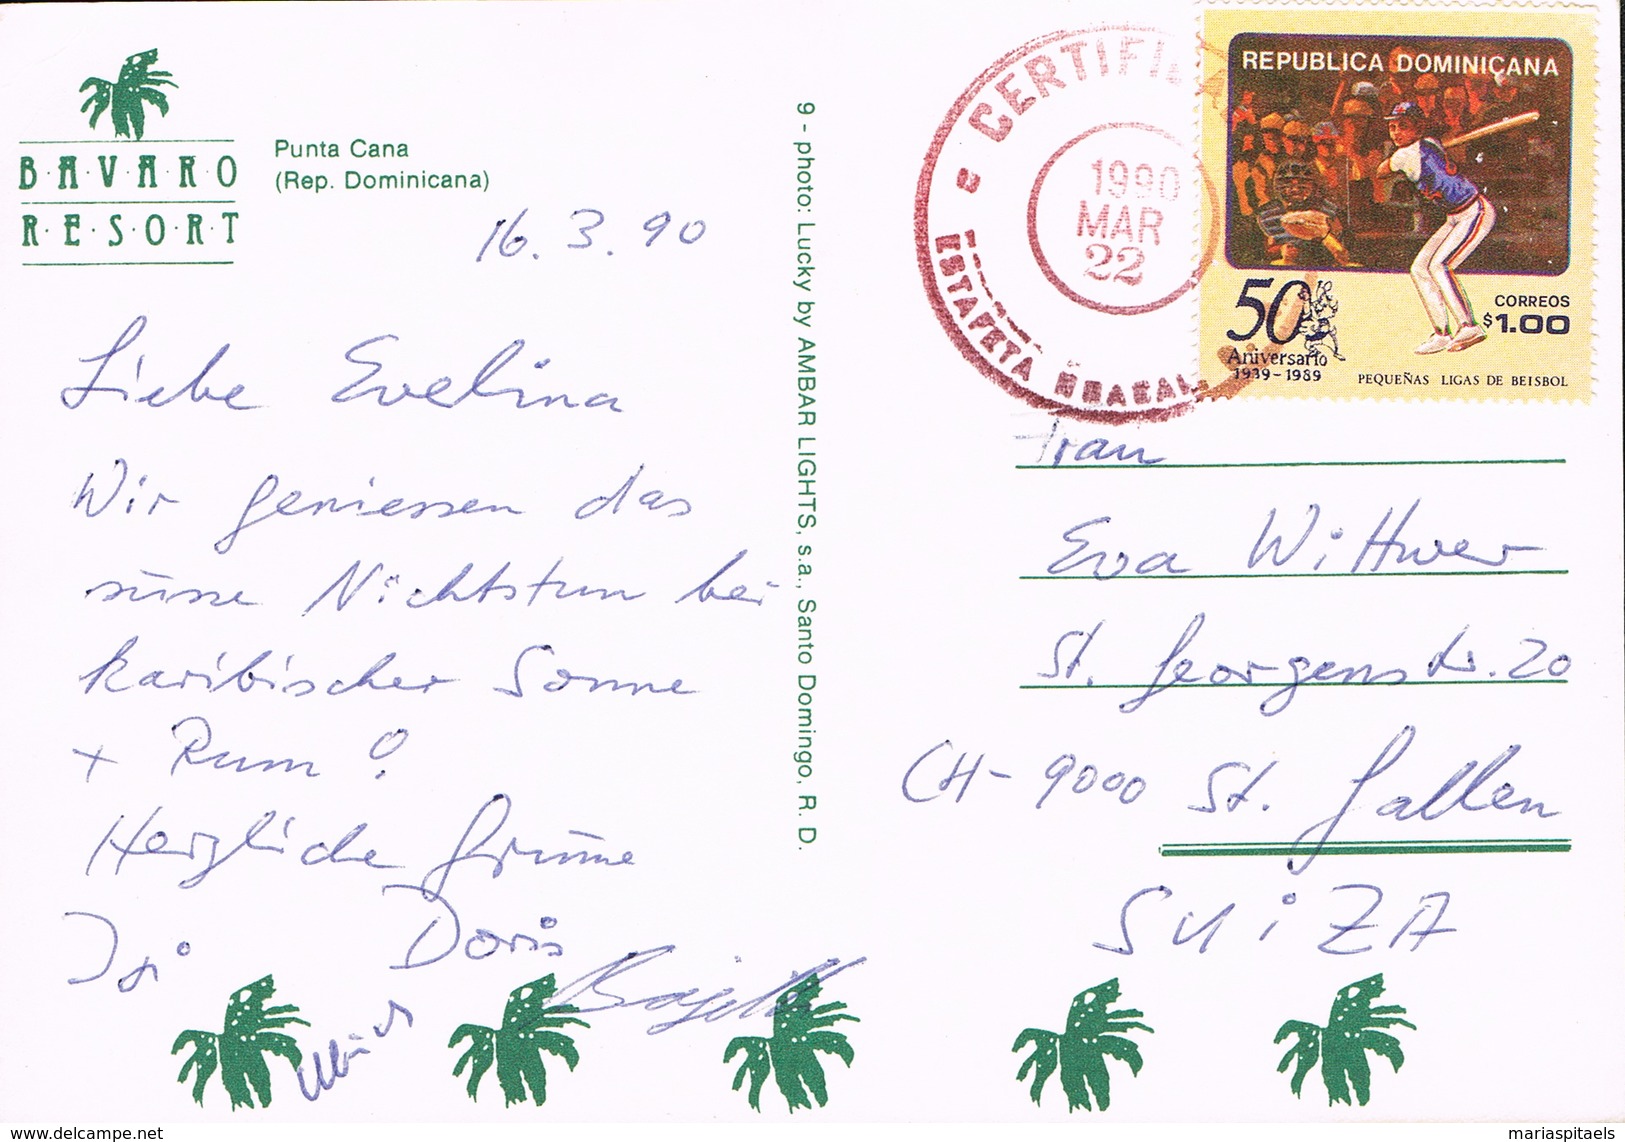 BAVARO
RESORT
Punta Cana
(Rep. Dominicana)
16.3.90
Liebe Evelina
Wir geniessen das
süsse Nichtstun bei
karibischer Sonne
+ Rum!
Herzliche Grüsse
Doris
Ulrich
9 - photo: Lucky by AMBAR LIGHTS, s.a., Santo Domingo, R. D.
1990
MAR
22
ESTAFETA
REPUBLICA DOMINICANA
50
Aniversario
1939-1989
CORREOS
$1.00
PEQUEÑAS LIGAS DE BEISBOL
Frau
Eva Wittwer
St. Georgenstr. 20
CH-9000 St. Gallen
SUiZA
delcampe.net
mariaspitaels